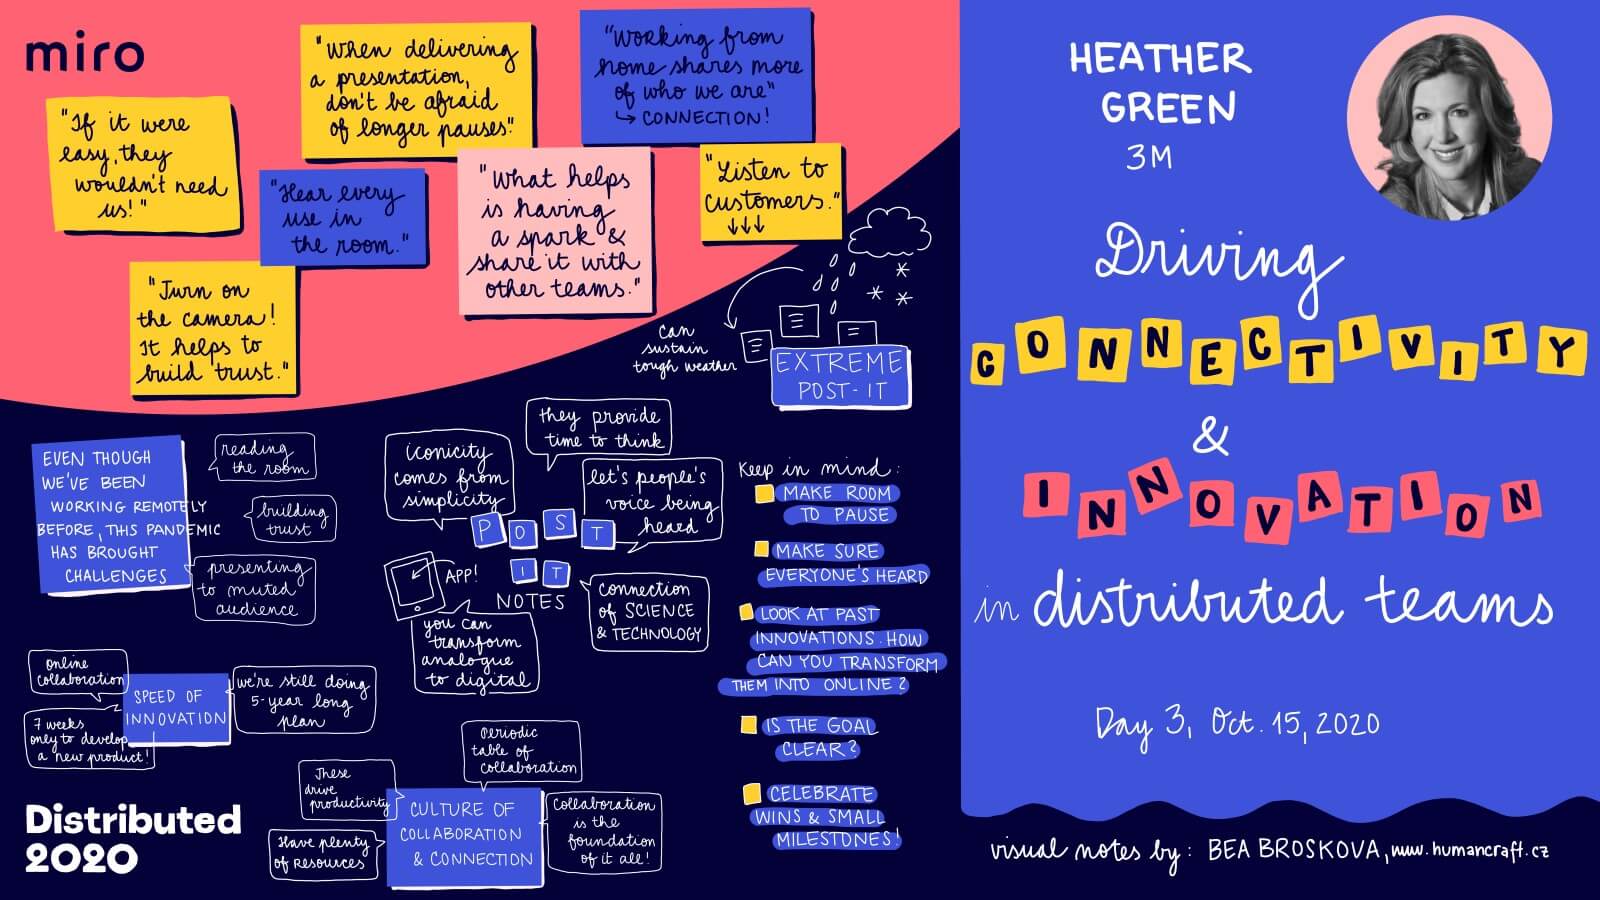 miro
"If it were
easy, they
wouldn't need
us!"
"When delivering
a presentation,
don't be afraid
of longer pauses."
"Working from
home shares more
of who we are"
↳ CONNECTION!
"Hear every
use in
the room."
"What helps
is having
a spark &
share it with
other teams."
"Listen to
customers."
↓↓↓
"Turn on
the camera!
It helps to
build trust."
can
sustain
tough weather
EXTREME
POST-IT
EVEN THOUGH
WE'VE BEEN
WORKING REMOTELY
BEFORE, THIS PANDEMIC
HAS BROUGHT
CHALLENGES
reading
the room
building
trust
presenting
to muted
audience
iconicity
comes from
simplicity
they provide
time to think
let's people's
voice being
heard
POST
IT
NOTES
APP!
you can
transform
analogue
to digital
connection
of SCIENCE
& TECHNOLOGY
online
collaboration
7 weeks
only to develop
a new product!
SPEED OF
INNOVATION
we're still doing
5-year long
plan
Periodic
table of
collaboration
These
drive
productivity
Have plenty
of resources
CULTURE OF
COLLABORATION
& CONNECTION
Collaboration
is the
foundation
of it all!
Keep in mind:
MAKE ROOM
TO PAUSE
MAKE SURE
EVERYONE'S HEARD
LOOK AT PAST
INNOVATIONS. HOW
CAN YOU TRANSFORM
THEM INTO ONLINE?
IS THE GOAL
CLEAR?
CELEBRATE
WINS & SMALL
MILESTONES!
Distributed
2020
HEATHER
GREEN
3M
Driving
CONNECTIVITY
&
INNOVATION
in distributed teams
Day 3, Oct. 15, 2020
visual notes by: BEA BROSKOVA, www.humancraft.cz